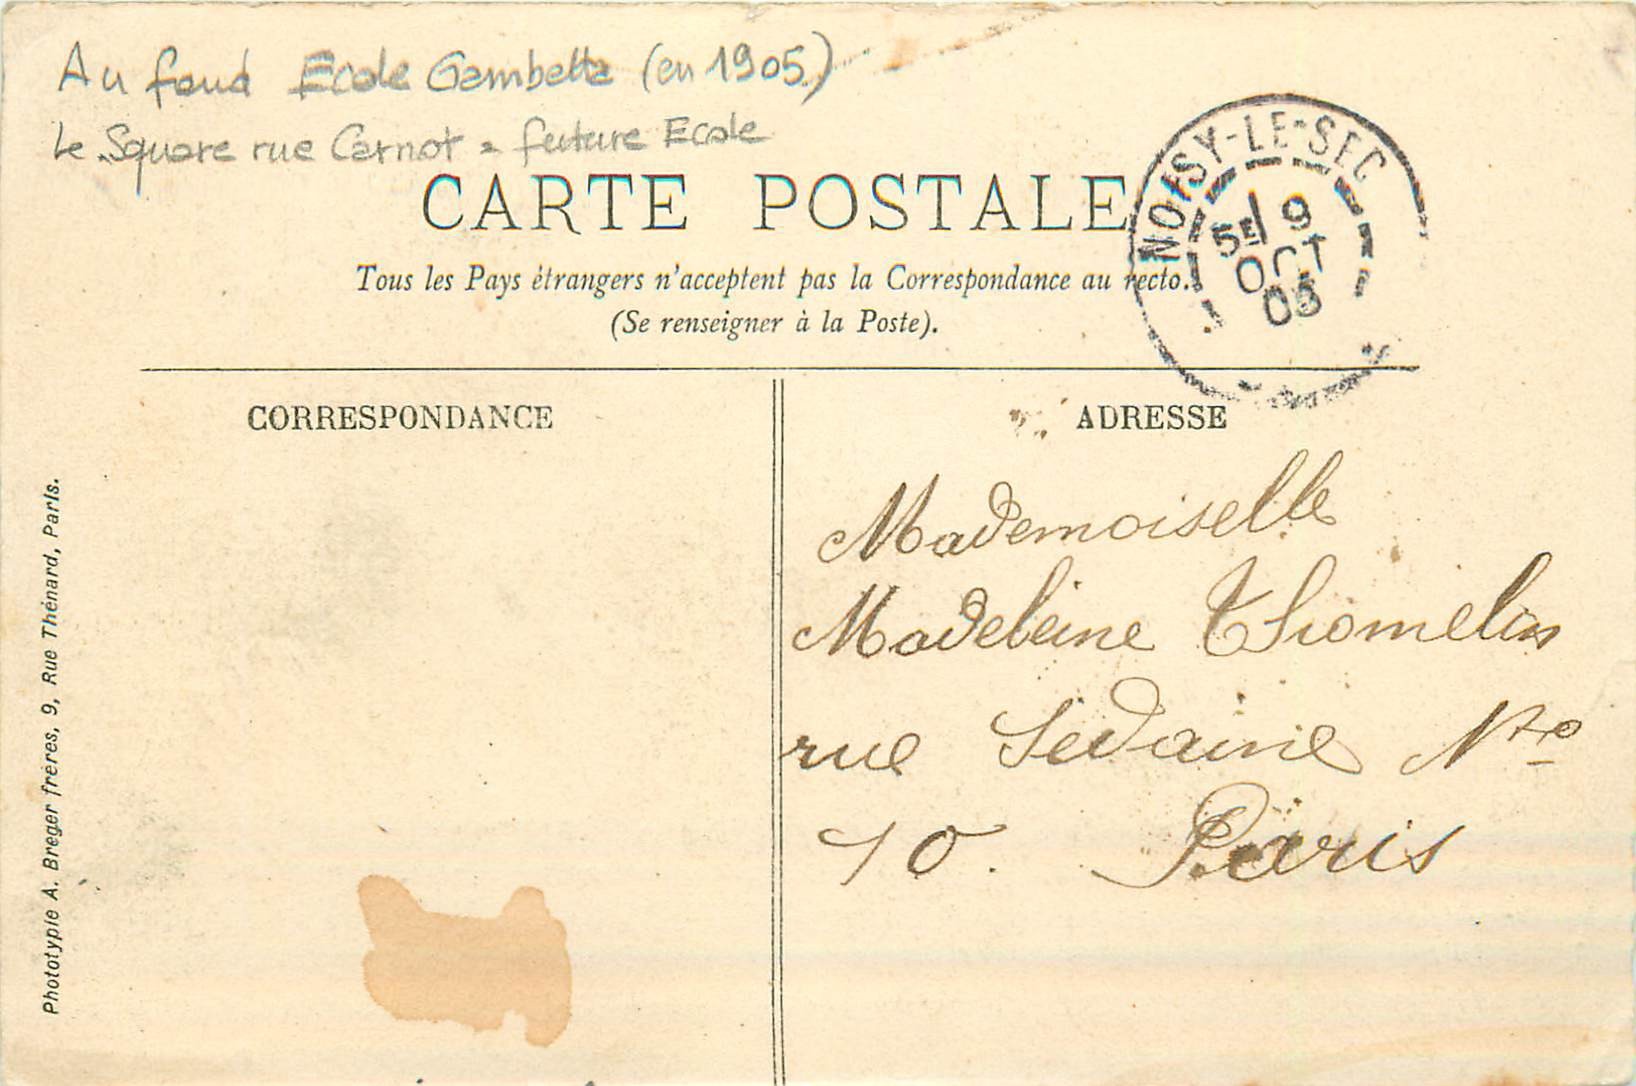 Au fond Ecole Gambetta (en 1905)
Le Square rue Carnot = future Ecole
CARTE POSTALE
Tous les Pays étrangers n'acceptent pas la Correspondance au recto.
(Se renseigner à la Poste).
NOISY-LE-SEC
5E 9
OCT
05
CORRESPONDANCE
ADRESSE
Mademoiselle
Madeleine Thomelin
rue Sedaine No
10. Paris
Phototypie A. Breger frères, 9, Rue Thénard, Paris.